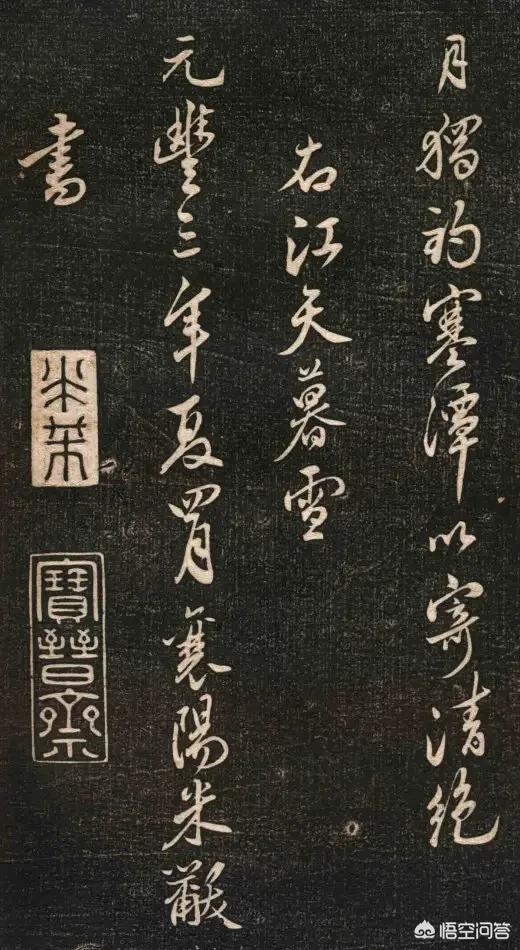 月獨釣寒潭以寄清絕
右江天暮雪
元豐三年夏四月襄陽米黻
書
米芾
寶晉齋
悟空问答